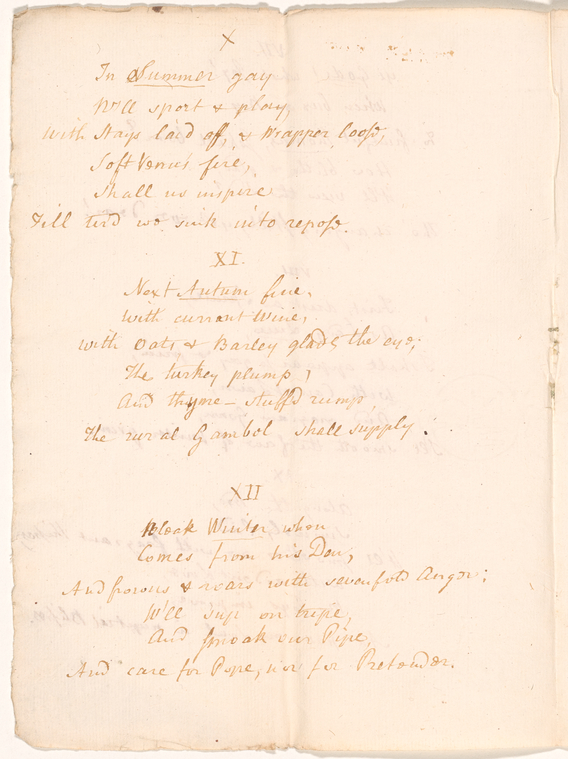 X
In Summer gay
We'll sport & play,
with Stays laid off, & Wrapper loose
Soft Venus' fire,
Shall us inspire
Till tir'd we sink into repose.
XI.
Next Autum fine,
with currant Wine,
with Oats & Barley glads the eye;
The turkey plump,
And thyme-stuff'd rump
The rural Gambol shall supply.
XII
Bleak Winter when
Comes from his Den,
And frowns & roars with sevenfold Anger;
We'll sup on tripe,
And smoak our Pipe,
And care for Pope, nor for Pretender.